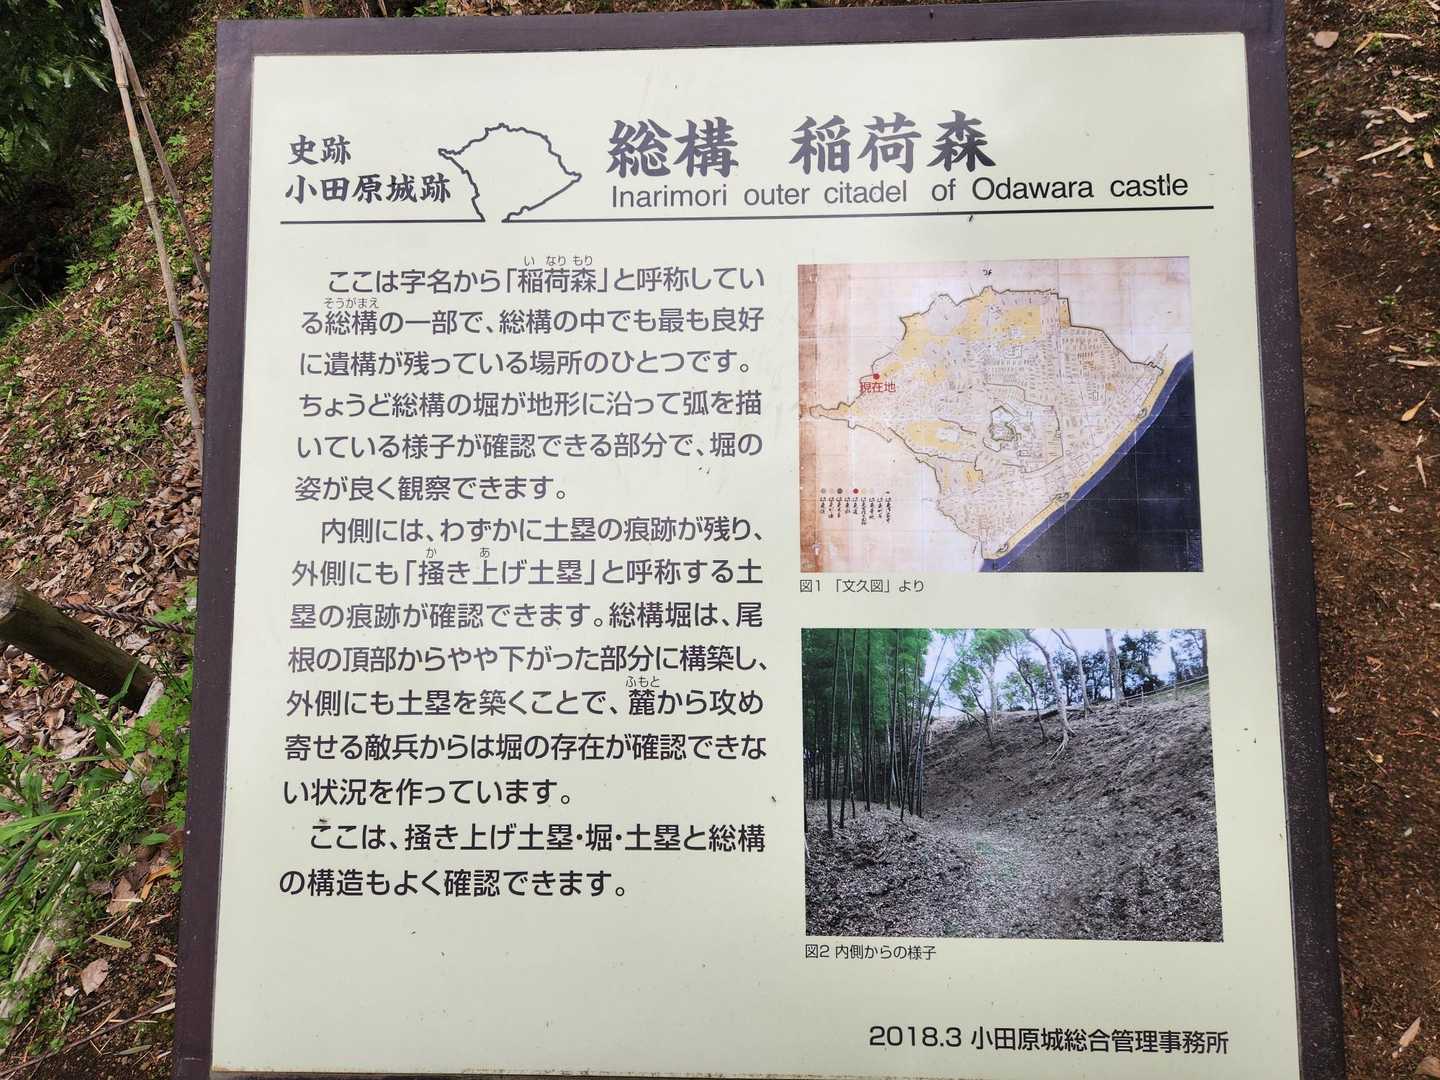 史跡
小田原城跡
総構 稲荷森
Inarimori outer citadel of Odawara castle
ここは字名から「稲荷森」と呼称してい
る総構の一部で、総構の中でも最も良好
に遺構が残っている場所のひとつです。
ちょうど総構の堀が地形に沿って弧を描
いている様子が確認できる部分で、堀の
姿が良く観察できます。
内側には、わずかに土塁の痕跡が残り、
外側にも「掻き上げ土塁」と呼称する土
塁の痕跡が確認できます。総構堀は、尾
根の頂部からやや下がった部分に構築し、
外側にも土塁を築くことで、麓から攻め
寄せる敵兵からは堀の存在が確認できな
い状況を作っています。
ここは、掻き上げ土塁・堀・土塁と総構
の構造もよく確認できます。
現在地
図1 「文久図」より
図2 内側からの様子
2018.3 小田原城総合管理事務所